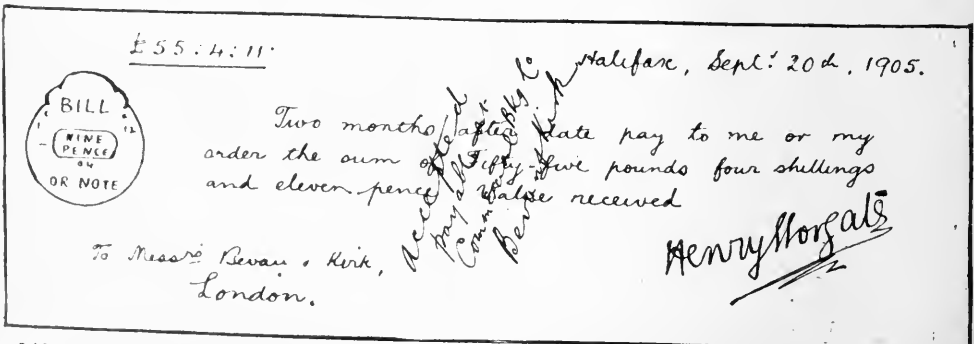 £55:4:11.
Halifax, Septr. 20th, 1905.
BILL
NINE
PENCE
OR NOTE
Two months after date pay to me or my
order the sum of Fifty-five pounds four shillings
and eleven pence Value received
Accepted
payable at
Commercial Bkg Co
Bevan & Kirk
To Messrs Bevan & Kirk,
London.